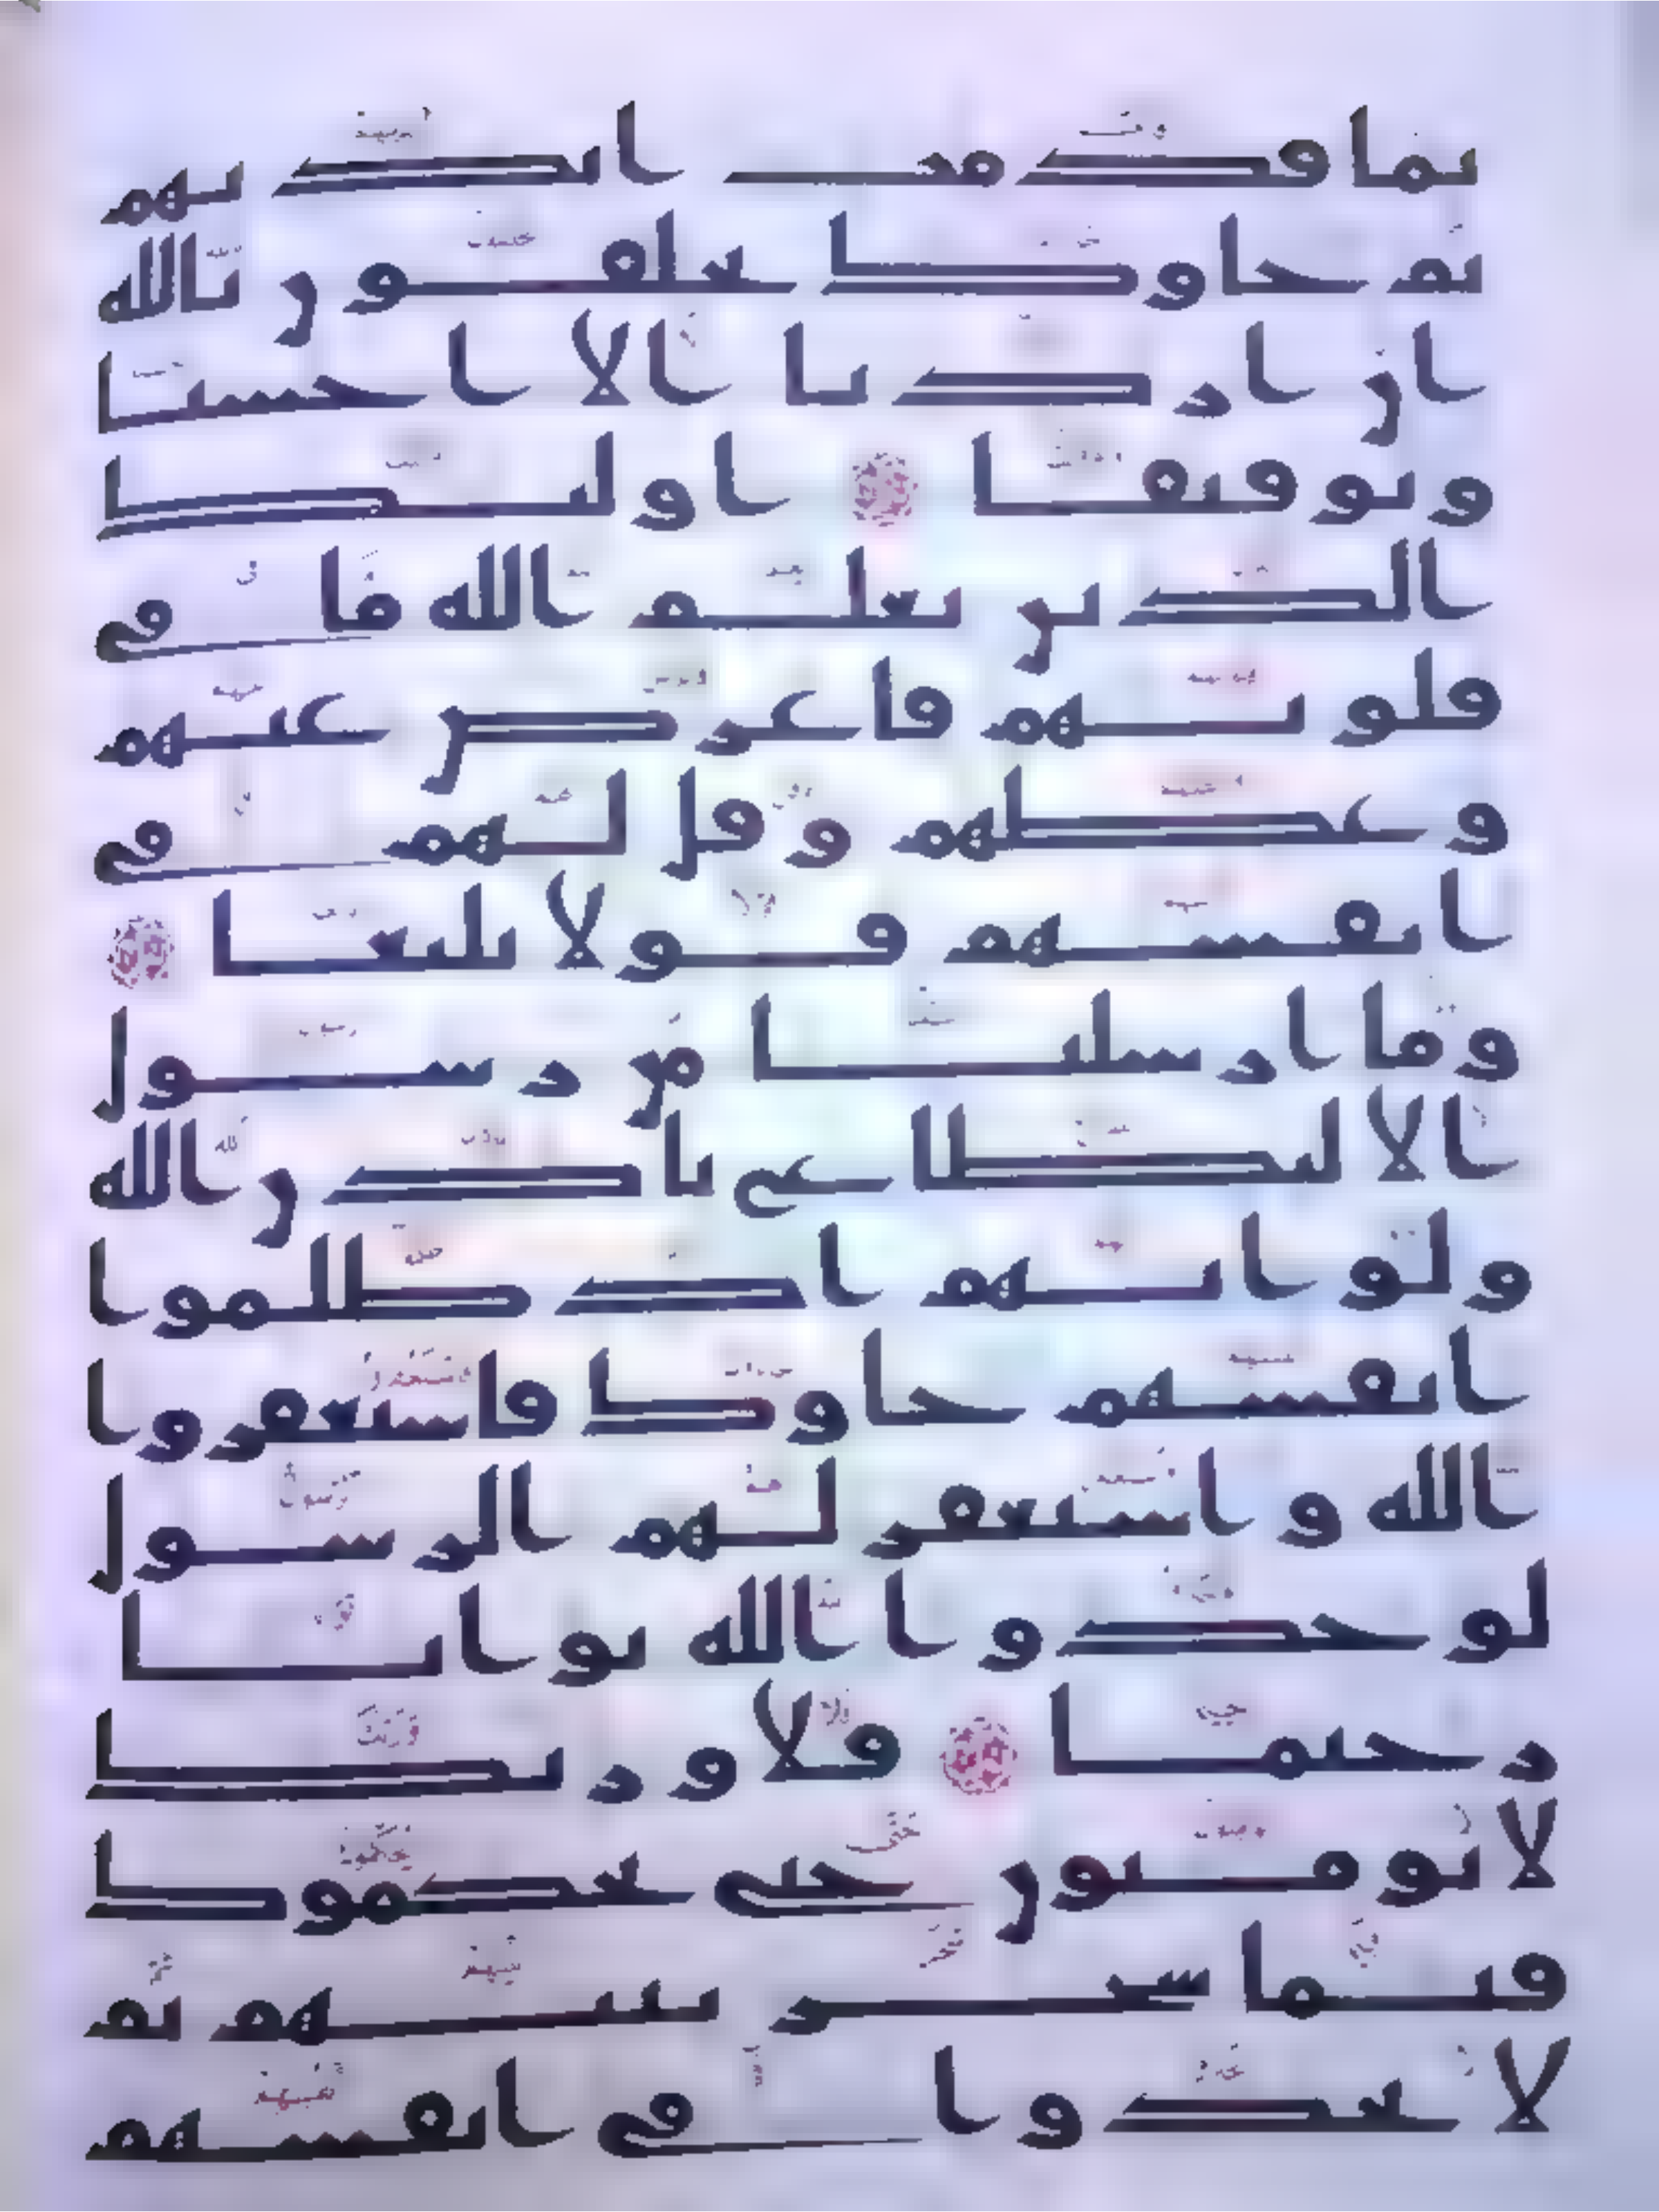 بما قدمت ايديهم
ثم جاوك يحلفون بالله
ان اردنا الا احسنا
وتوفيقا اوليك
الذين يعلم الله ما في
قلوبهم فاعرض عنهم
وعظهم وقل لهم في
انفسهم قولا بليغا
وما ارسلنا من رسول
الا ليطاع باذن الله
ولو انهم اذ ظلموا
انفسهم جاوك فاستغفروا
الله واستغفر لهم الرسول
لوجدوا الله توابا
رحيما فلا وربك
لا يومنون حتى يحكموك
فيما شجر بينهم ثم
لا يجدوا في انفسهم